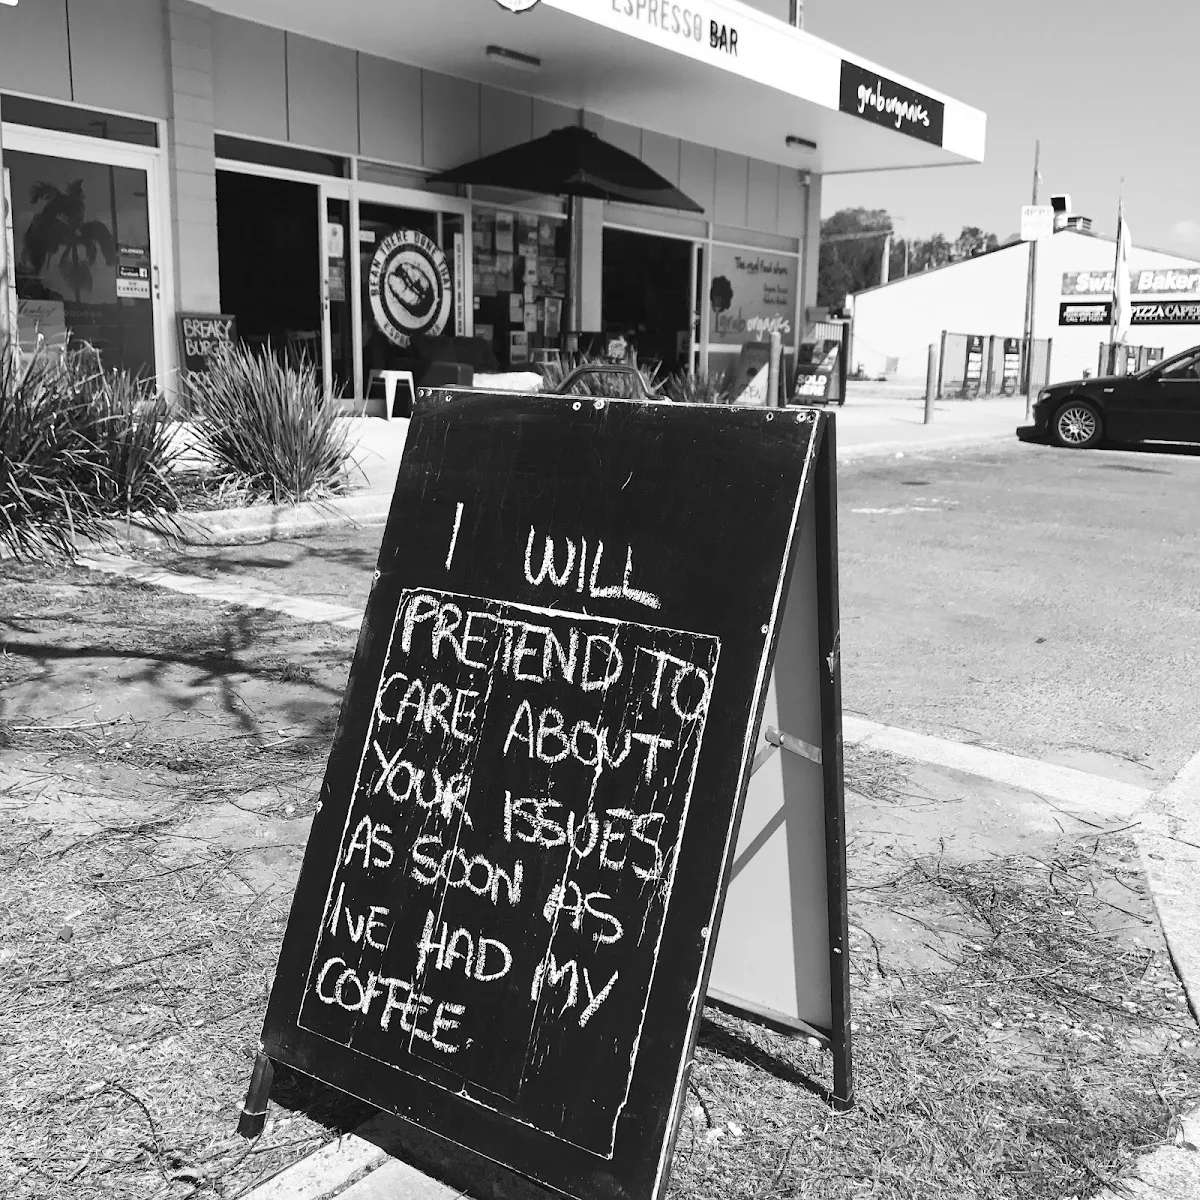 ESPRESSO BAR
gruborganics
BEAN THERE DONE THAT
BREAKY
BURGER
The real food store
gruborganics
SOLD
Swiss Baker
PIZZA CAPER
I WILL
PRETEND TO
CARE ABOUT
YOUR ISSUES
AS SOON AS
IVE HAD MY
COFFEE.